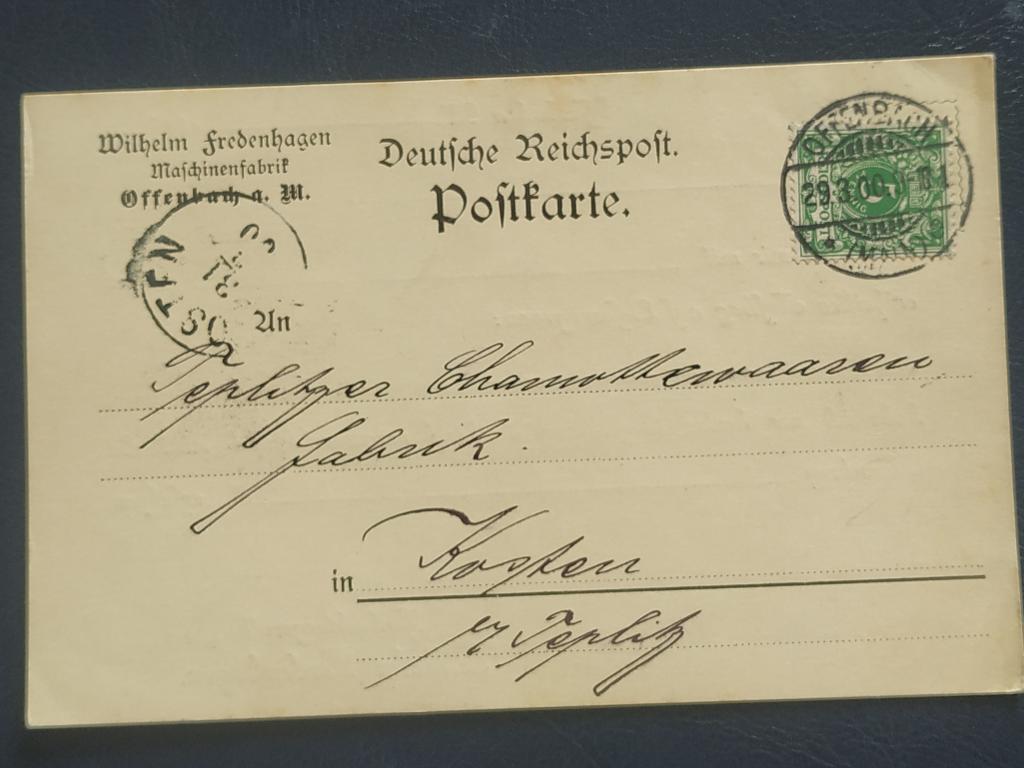 Wilhelm Fredenhagen
Maschinenfabrik
Offenbach a. M.
Deutsche Reichspost.
Postkarte.
OFFENBACH
29.3.00
(MAIN)
KOSTEN
An
Teplitzer Chamottewaaren
Fabrik.
in Kosten
Teplitz